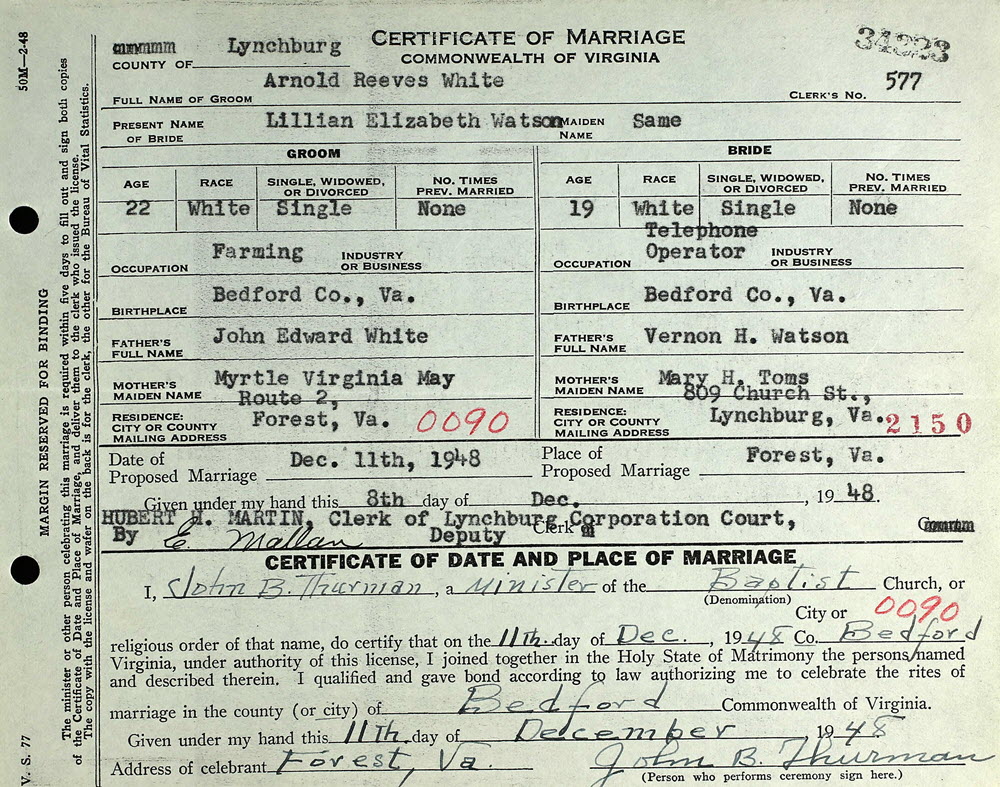 Lynchburg CERTIFICATE OF MARRIAGE
COUNTY OF COMMONWEALTH OF VIRGINIA 34233
Arnold Reeves White 577
FULL NAME OF GROOM CLERK'S NO.
PRESENT NAME OF BRIDE Lillian Elizabeth Watson MAIDEN NAME Same
GROOM BRIDE
AGE RACE SINGLE, WIDOWED, OR DIVORCED NO. TIMES PREV. MARRIED AGE RACE SINGLE, WIDOWED, OR DIVORCED NO. TIMES PREV. MARRIED
22 White Single None 19 White Single None
OCCUPATION Farming INDUSTRY OR BUSINESS OCCUPATION Telephone Operator INDUSTRY OR BUSINESS
BIRTHPLACE Bedford Co., Va. BIRTHPLACE Bedford Co., Va.
FATHER'S FULL NAME John Edward White FATHER'S FULL NAME Vernon H. Watson
MOTHER'S MAIDEN NAME Myrtle Virginia May MOTHER'S MAIDEN NAME Mary H. Toms
RESIDENCE: CITY OR COUNTY MAILING ADDRESS Route 2, Forest, Va. 0090 RESIDENCE: CITY OR COUNTY MAILING ADDRESS 809 Church St., Lynchburg, Va. 2150
Date of Proposed Marriage Dec. 11th, 1948 Place of Proposed Marriage Forest, Va.
Given under my hand this 8th day of Dec., 1948.
HUBERT H. MARTIN, Clerk of Lynchburg Corporation Court,
By E. Mallan Deputy Clerk
CERTIFICATE OF DATE AND PLACE OF MARRIAGE
I, John B. Thurman, a Minister of the Baptist Church, or
(Denomination) City or 0090
religious order of that name, do certify that on the 11th. day of Dec., 1948 Co. Bedford
Virginia, under authority of this license, I joined together in the Holy State of Matrimony the persons named
and described therein. I qualified and gave bond according to law authorizing me to celebrate the rites of
marriage in the county (or city) of Bedford Commonwealth of Virginia.
Given under my hand this 11th day of December, 1948
Address of celebrant Forest, Va. John B. Thurman
(Person who performs ceremony sign here.)
50M—2-48
MARGIN RESERVED FOR BINDING
V. S. 77
The minister or other person celebrating this marriage is required within five days to fill out and sign both copies
of the Certificate of Date and Place of Marriage, and deliver them to the clerk who issued the license.
The copy with the license and wafer on the back is for the clerk, the other for the Bureau of Vital Statistics.